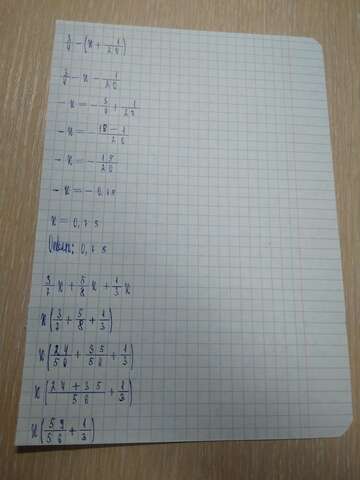 - (x + 1/20)
- x - 1/20
- x = - + 1/20
- x = -
- x = - 15/20
- x = - 0,75
x = 0,75
Ответ: 0,75
3/7 x + 5/8 x + 1/3 x
x(3/7 + 5/8 + 1/3)
x(24/56 + 35/56 + 1/3)
x((24 + 35)/56 + 1/3)
x(59/56 + 1/3)